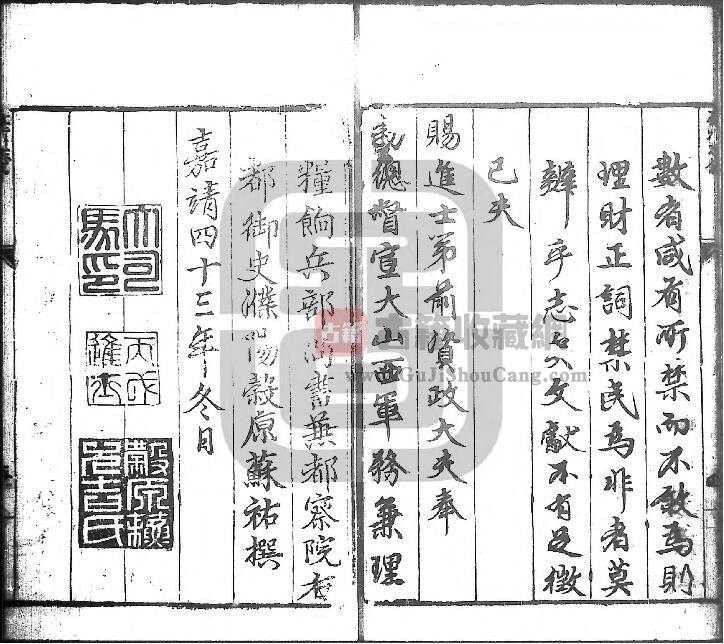 數者咸有所禁而不敢為則
理財正詞禁民為非者莫
辨乎志之文獻不有足徵
已夫
賜進士第前資政大夫奉
敕總督宣大山西軍務兼理
糧餉兵部尚書兼都察院右
都御史濮陽穀原蘇祐撰
嘉靖四十三年冬月
大司馬印
丙戌進士
古籍
古籍收藏網
www.GuJiShouCang.com